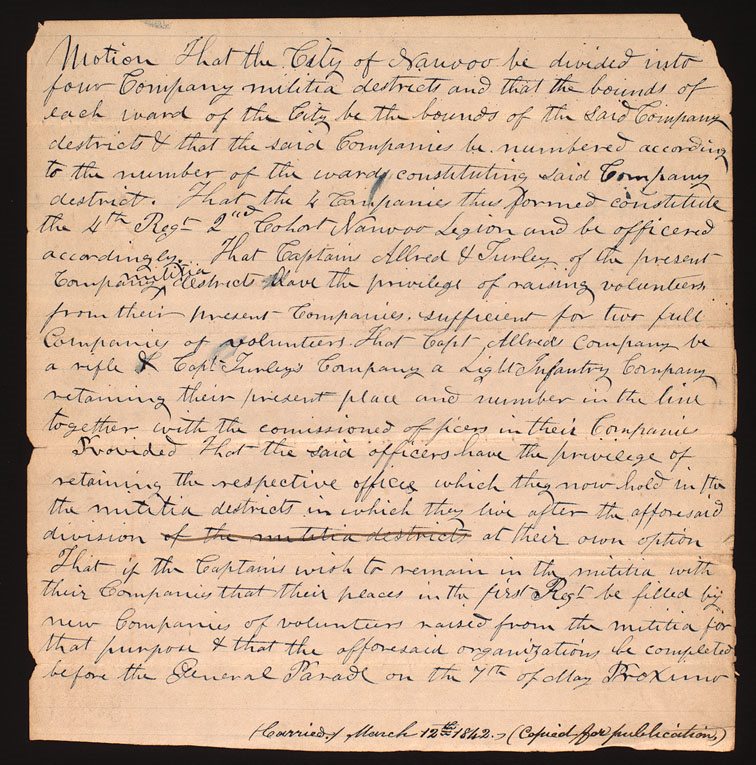 Motion That the City of Nauvoo be divided into
four Company militia destricts and that the bounds of
each ward of the City be the bounds of the said Company
destricts & that the said Companies be numbered according
to the number of the wards constituting said Company
destrict. That the 4 Companies thus formed constitute
the 4th Regt 2nd Cohort Nauvoo Legion and be officered
accordingly. That Captains Allred & Turley of the present
Company militia destricts have the privilege of raising volunteers
from their present Companies. sufficient for two full
Companies of volunteers. That Capt Allreds Company be
a rifle & Capt Turley's Company a Light Infantry Company
retaining their present place and number in the line
together with the comissioned officers in their Companies
Provided That the said officers have the privilege of
retaining the respective offices which they now hold in the
the militia destricts in which they live after the afforesaid
division of the militia destricts at their own option
That if the Captains wish to remain in the militia with
their Companies that their places in the first Regt be filled by
new Companies of volunteers raised from the militia for
that purpose & that the afforesaid organizations be completed
before the General Parade on the 7th of May Proximo
(Carried.) March 12th 1842. (Copied for publication,)